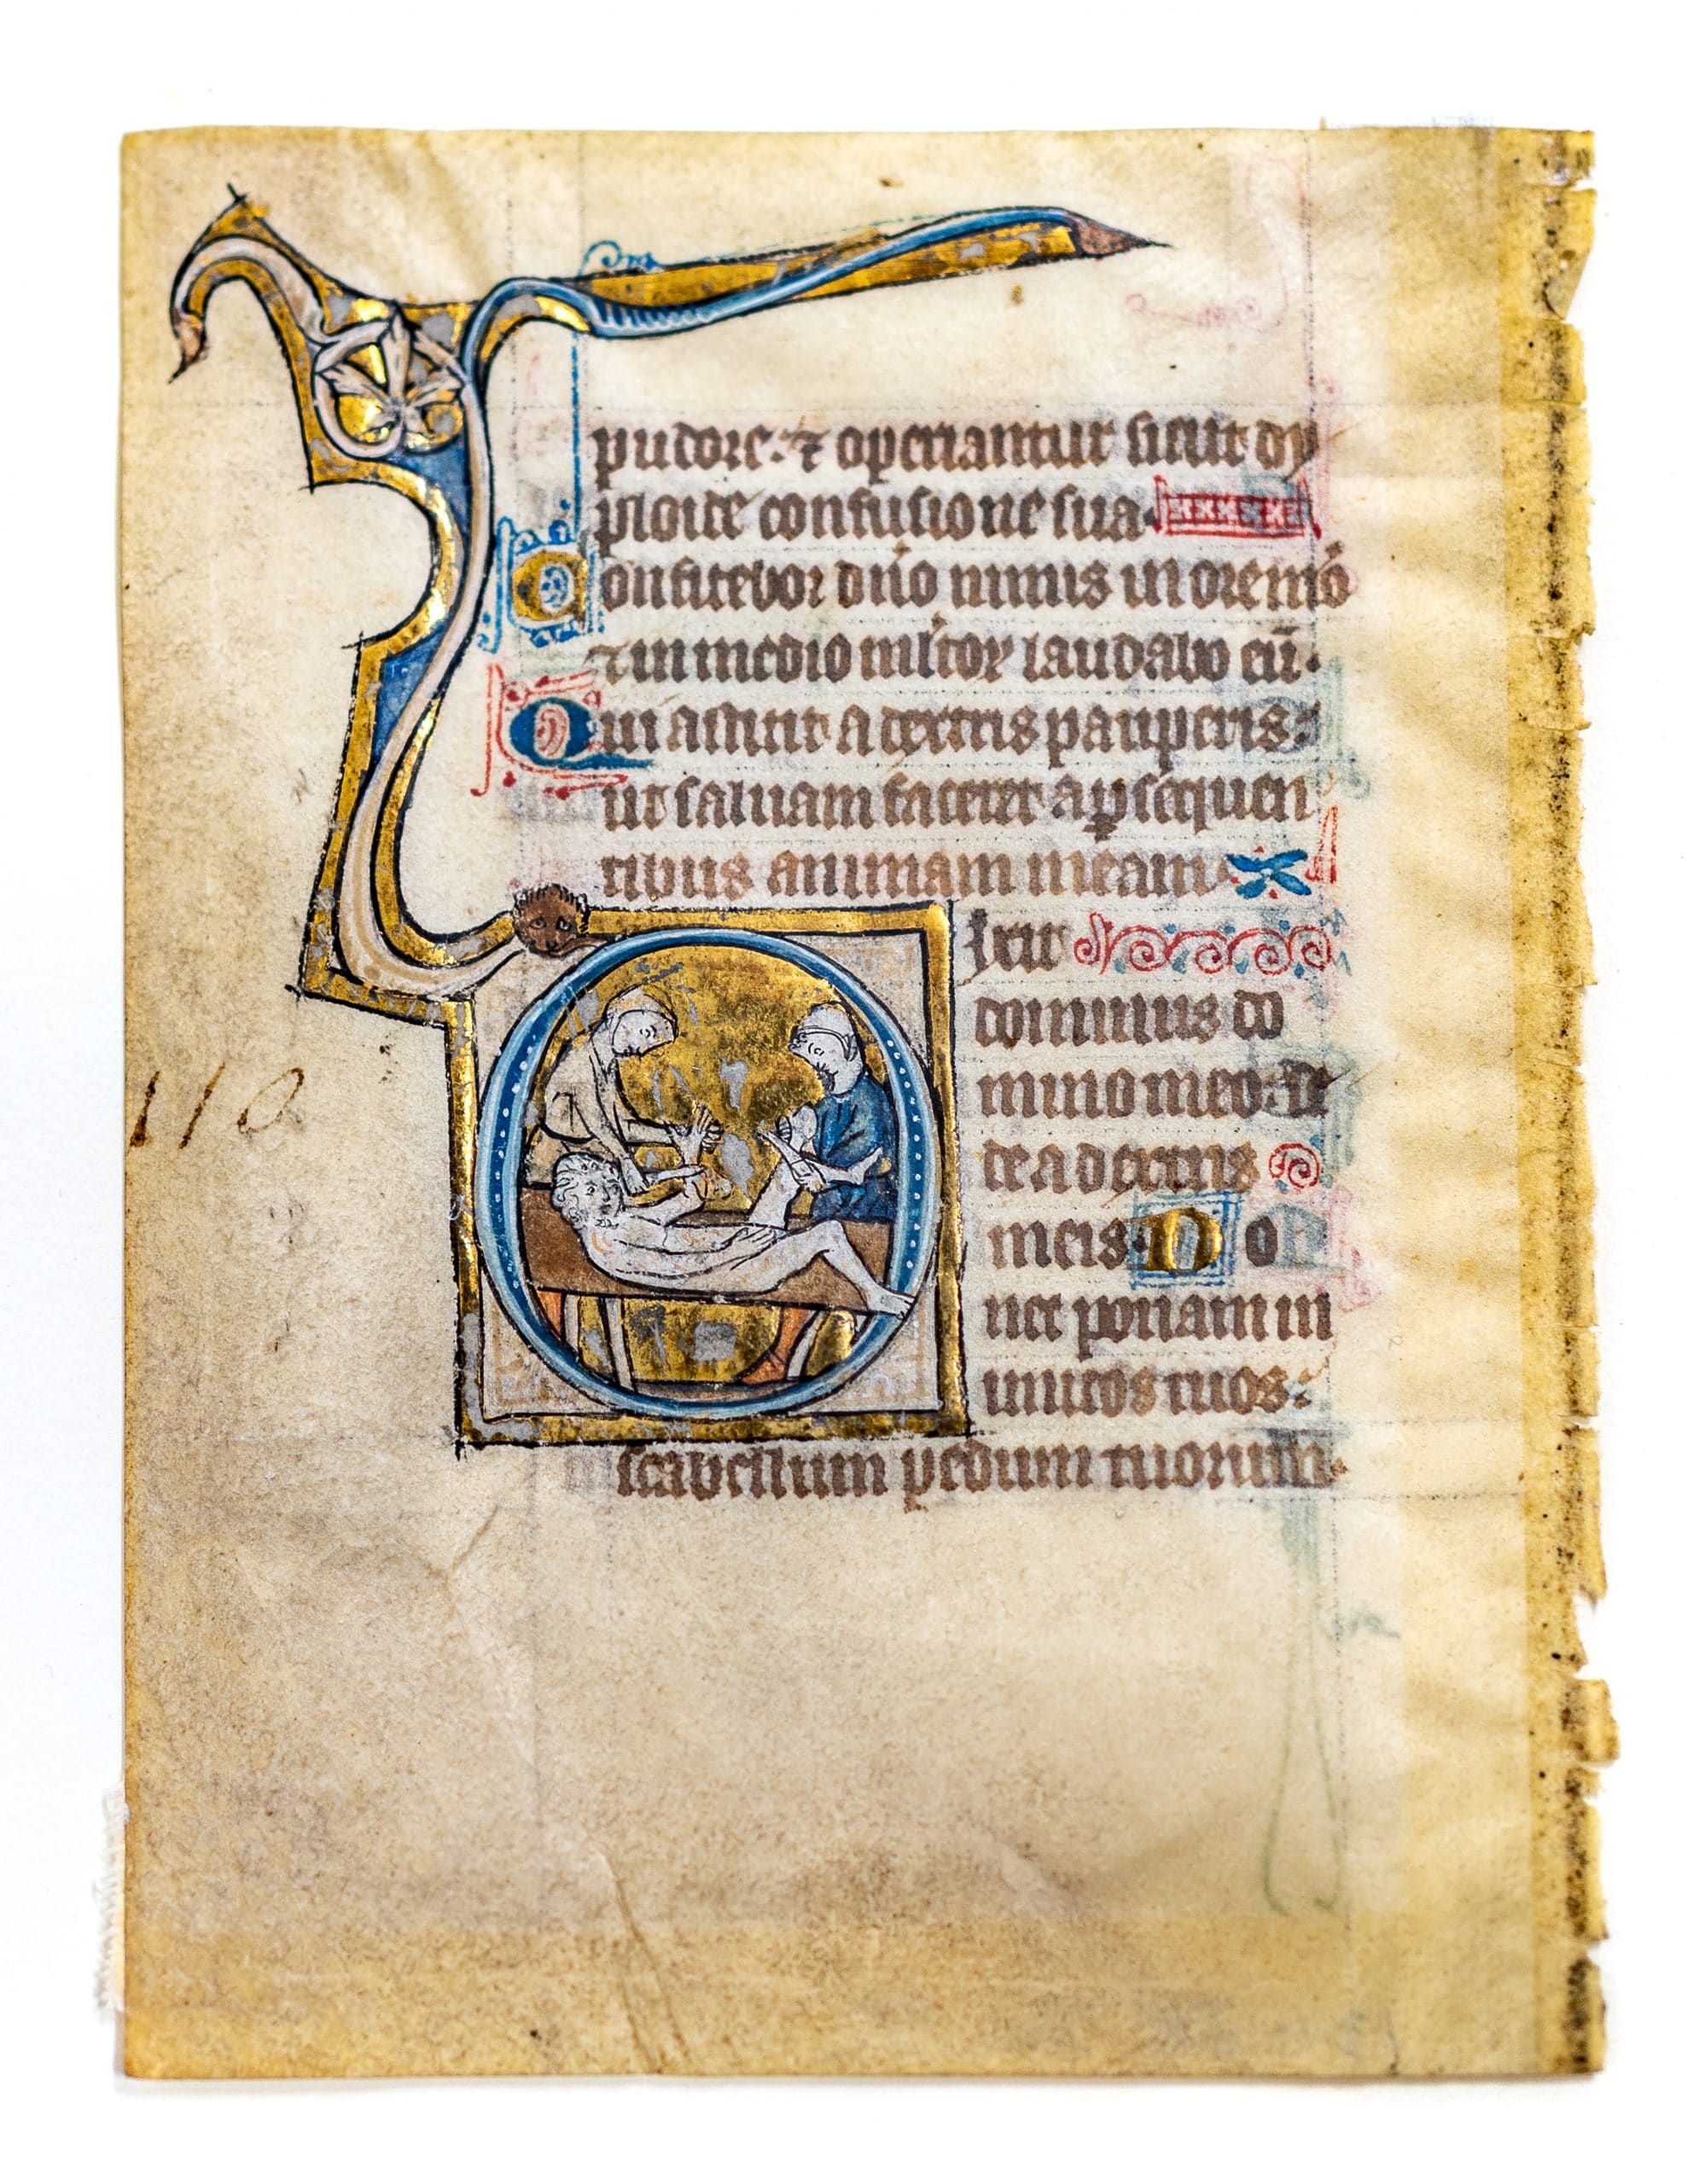 pudore. ⁊ operiantur sicut dy
ploide confusione sua.
Confitebor dño nimis in ore mõ
⁊ in medio mltoꝝ laudabo eũ.
Qui astitit a dextris pauperis:
ut saluam faceret a ꝑsequen
tibus animam meam.
Dixit
dominus do
mino meo: se
de a dextris
meis. Do
nec ponam in
imicos tuos:
scabellum pedum tuorum.
110